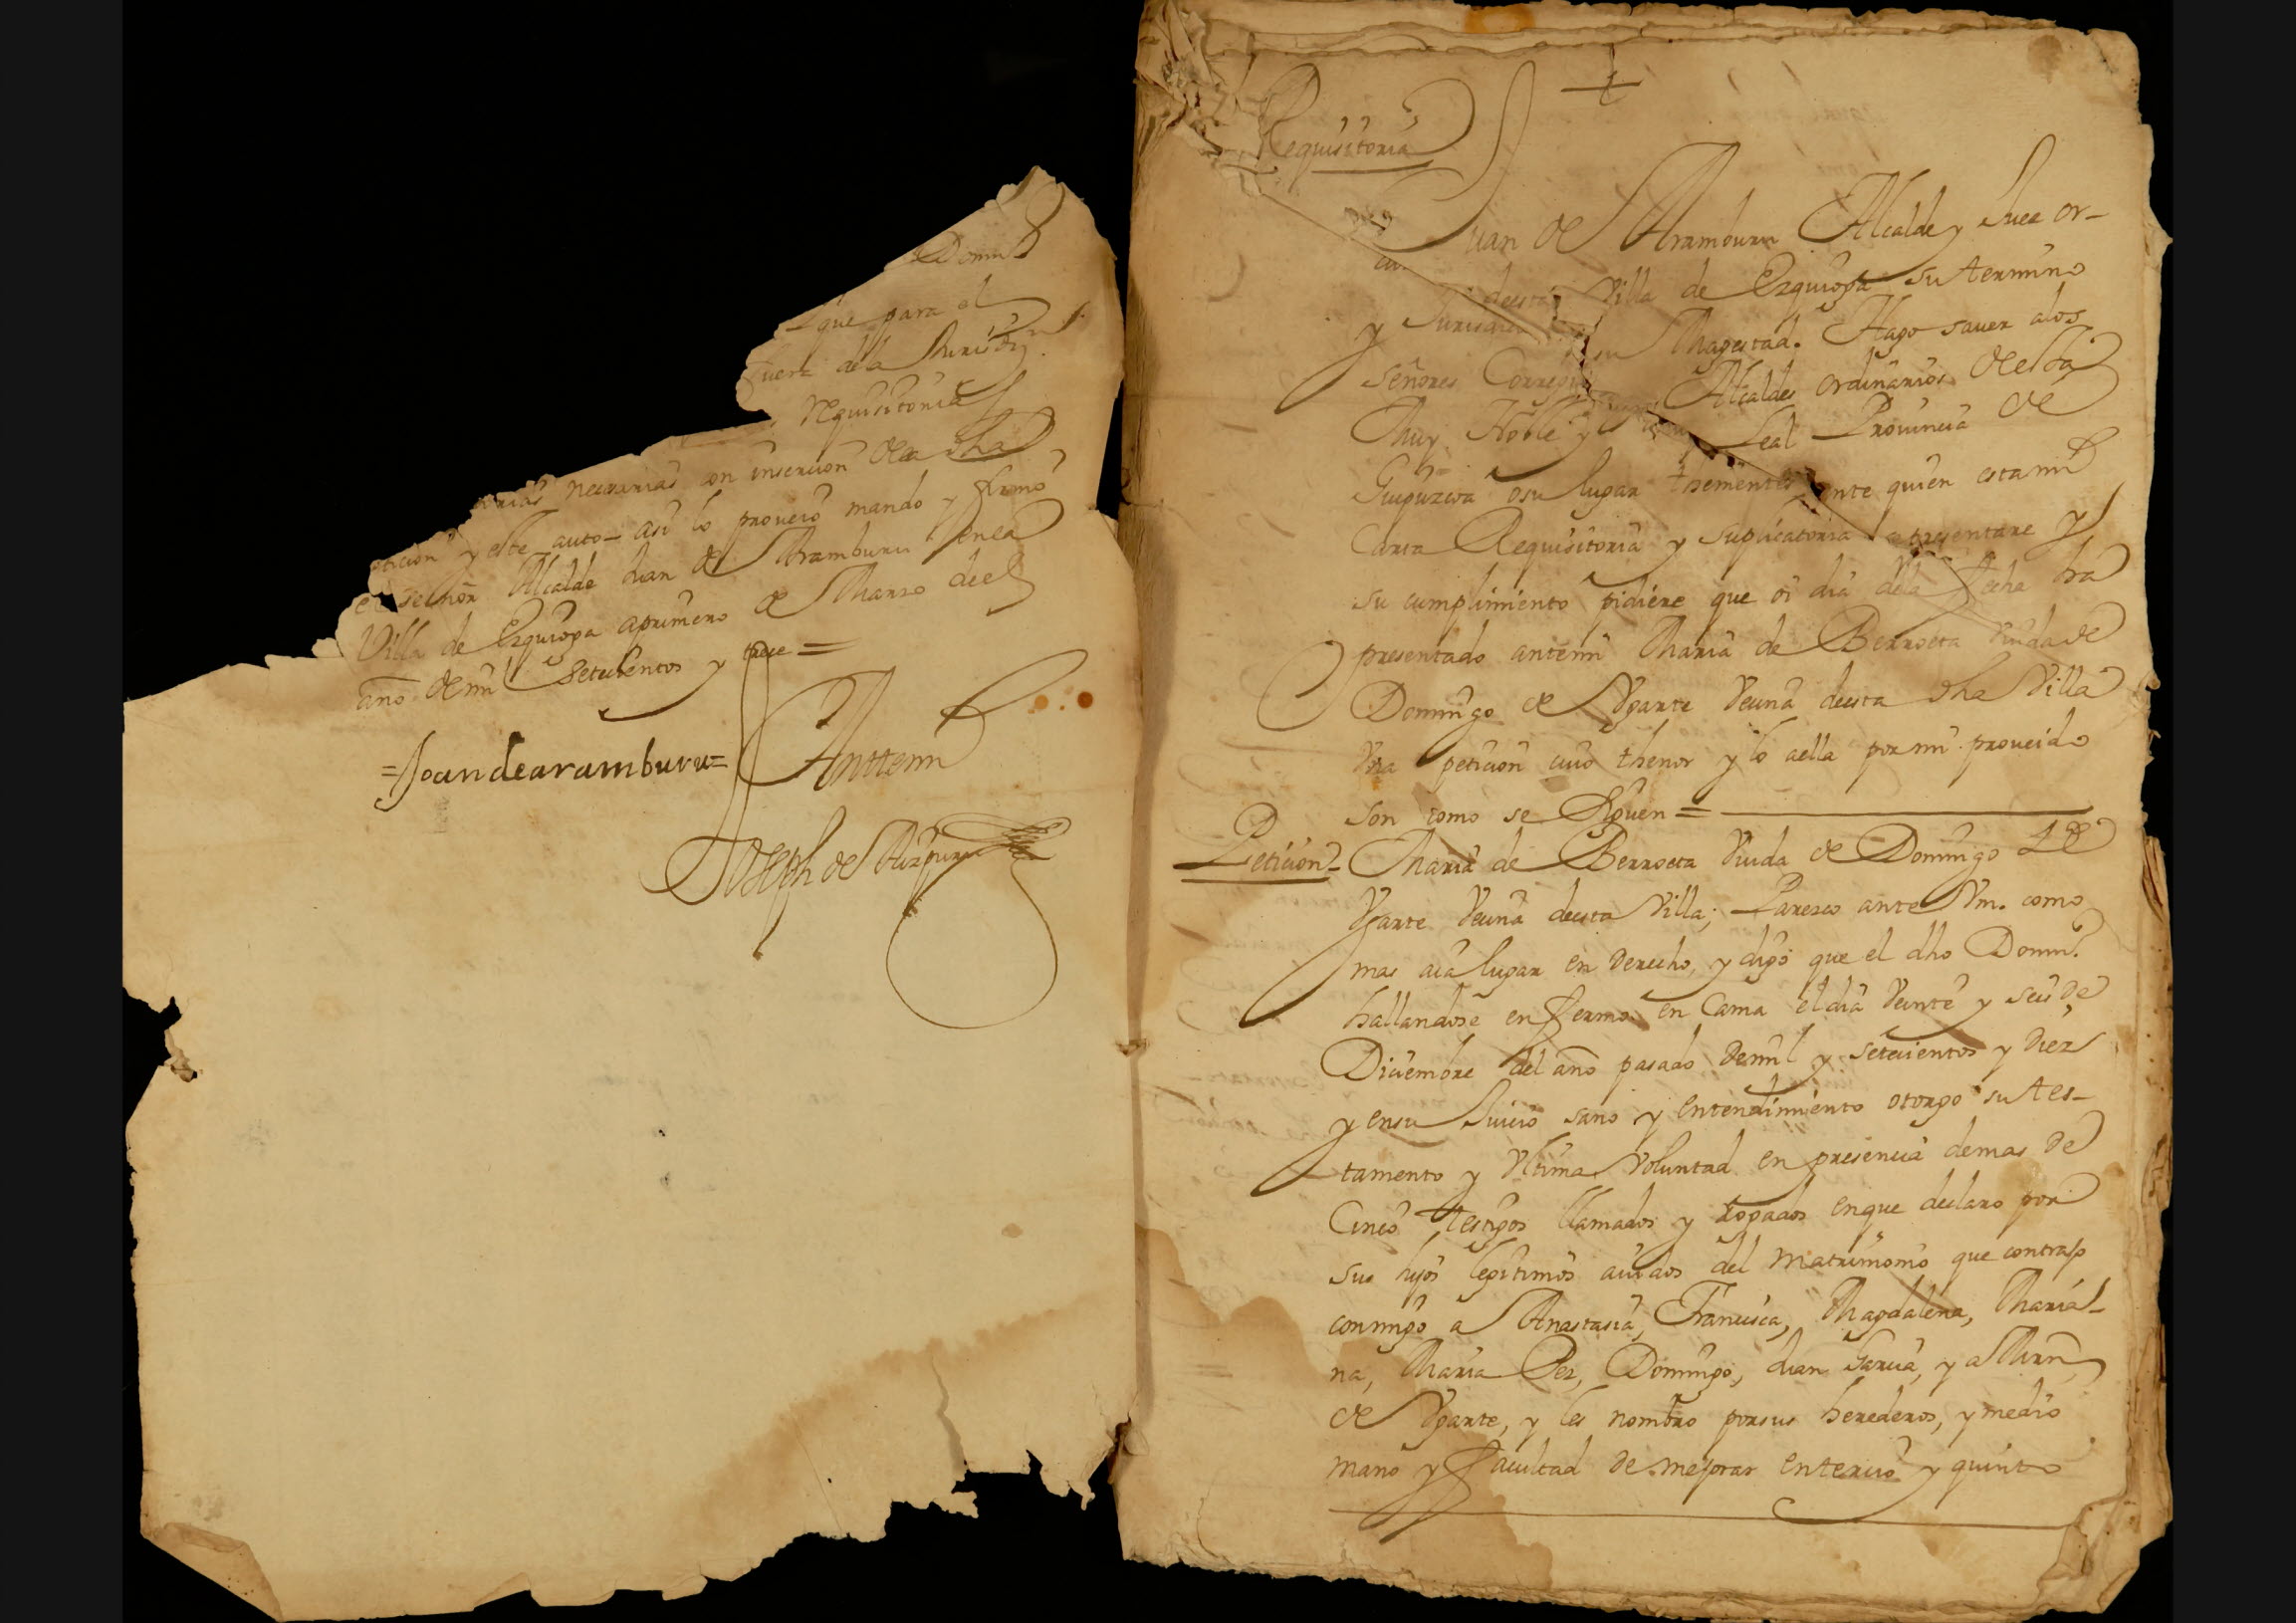 Domin
que para el
fuera dela Jurisdiⁿ
requisitoria
necesarias con insercion dela dha
peticion y este auto asi lo proveio mando y firmo
el señor Alcalde Juan de Aramburu en la
Villa de Ezquioga a primero de Marzo de el
año de mil setecientos y trece =
=Joan de aramburu= Antemi
Joseph de Aizpuru
Requisitoria
Juan de Aramburu Alcalde y Juez or-
desta Villa de Ezquioga su termino
y Jurisdic su Magestad. Hago saver alos
señores Correg Alcaldes ordinarios de esta
Muy Noble y Leal Provincia de
Guipuzcoa o su lugar thenientes ante quien esta mi
Carta Requisitoria y suplicatoria se presentare y
su cumplimiento pidiere que oi dia dela fecha ha
presentado antemi Maria de Berroeta Viuda de
Domingo de Vgarte Vecina desta dha Villa
Vna peticion cuio thenor y lo aella por mi proveido
son como se siguen =
Peticion - Maria de Berroeta Viuda de Domingo de
Vgarte Vecina desta Villa; Parezco ante Vm. como
mas aia lugar en derecho, y digo que el dho Domin.º
hallandose enfermo en Cama el dia Veinte y seis de
Diciembre del año pasado de mil y setecientos y diez
y en su Juicio sano y entendimiento otorgo su tes-
tamento y Vltima Voluntad en presencia de mas de
Cinco testigos llamados y rogados en que declaro por
sus hijos legitimos avidos del matrimonio que contrajo
conmigo a Anastasia, Francisca, Magdalena, Maria-
na, Maria Perz, Domingo, Juan Garcia, y a Mrn,
de Vgarte, y les nombro por sus herederos, y me dio
mano y facultad de mejorar en tercio y quinto